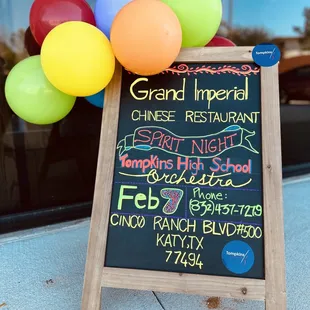 Grand Imperial
CHINESE RESTAURANT
SPIRIT NIGHT
Tompkins High School
Orchestra
Feb 7
Phone:
(832)437-7219
CINCO RANCH BLVD #500
KATY, TX
77494
Tompkins